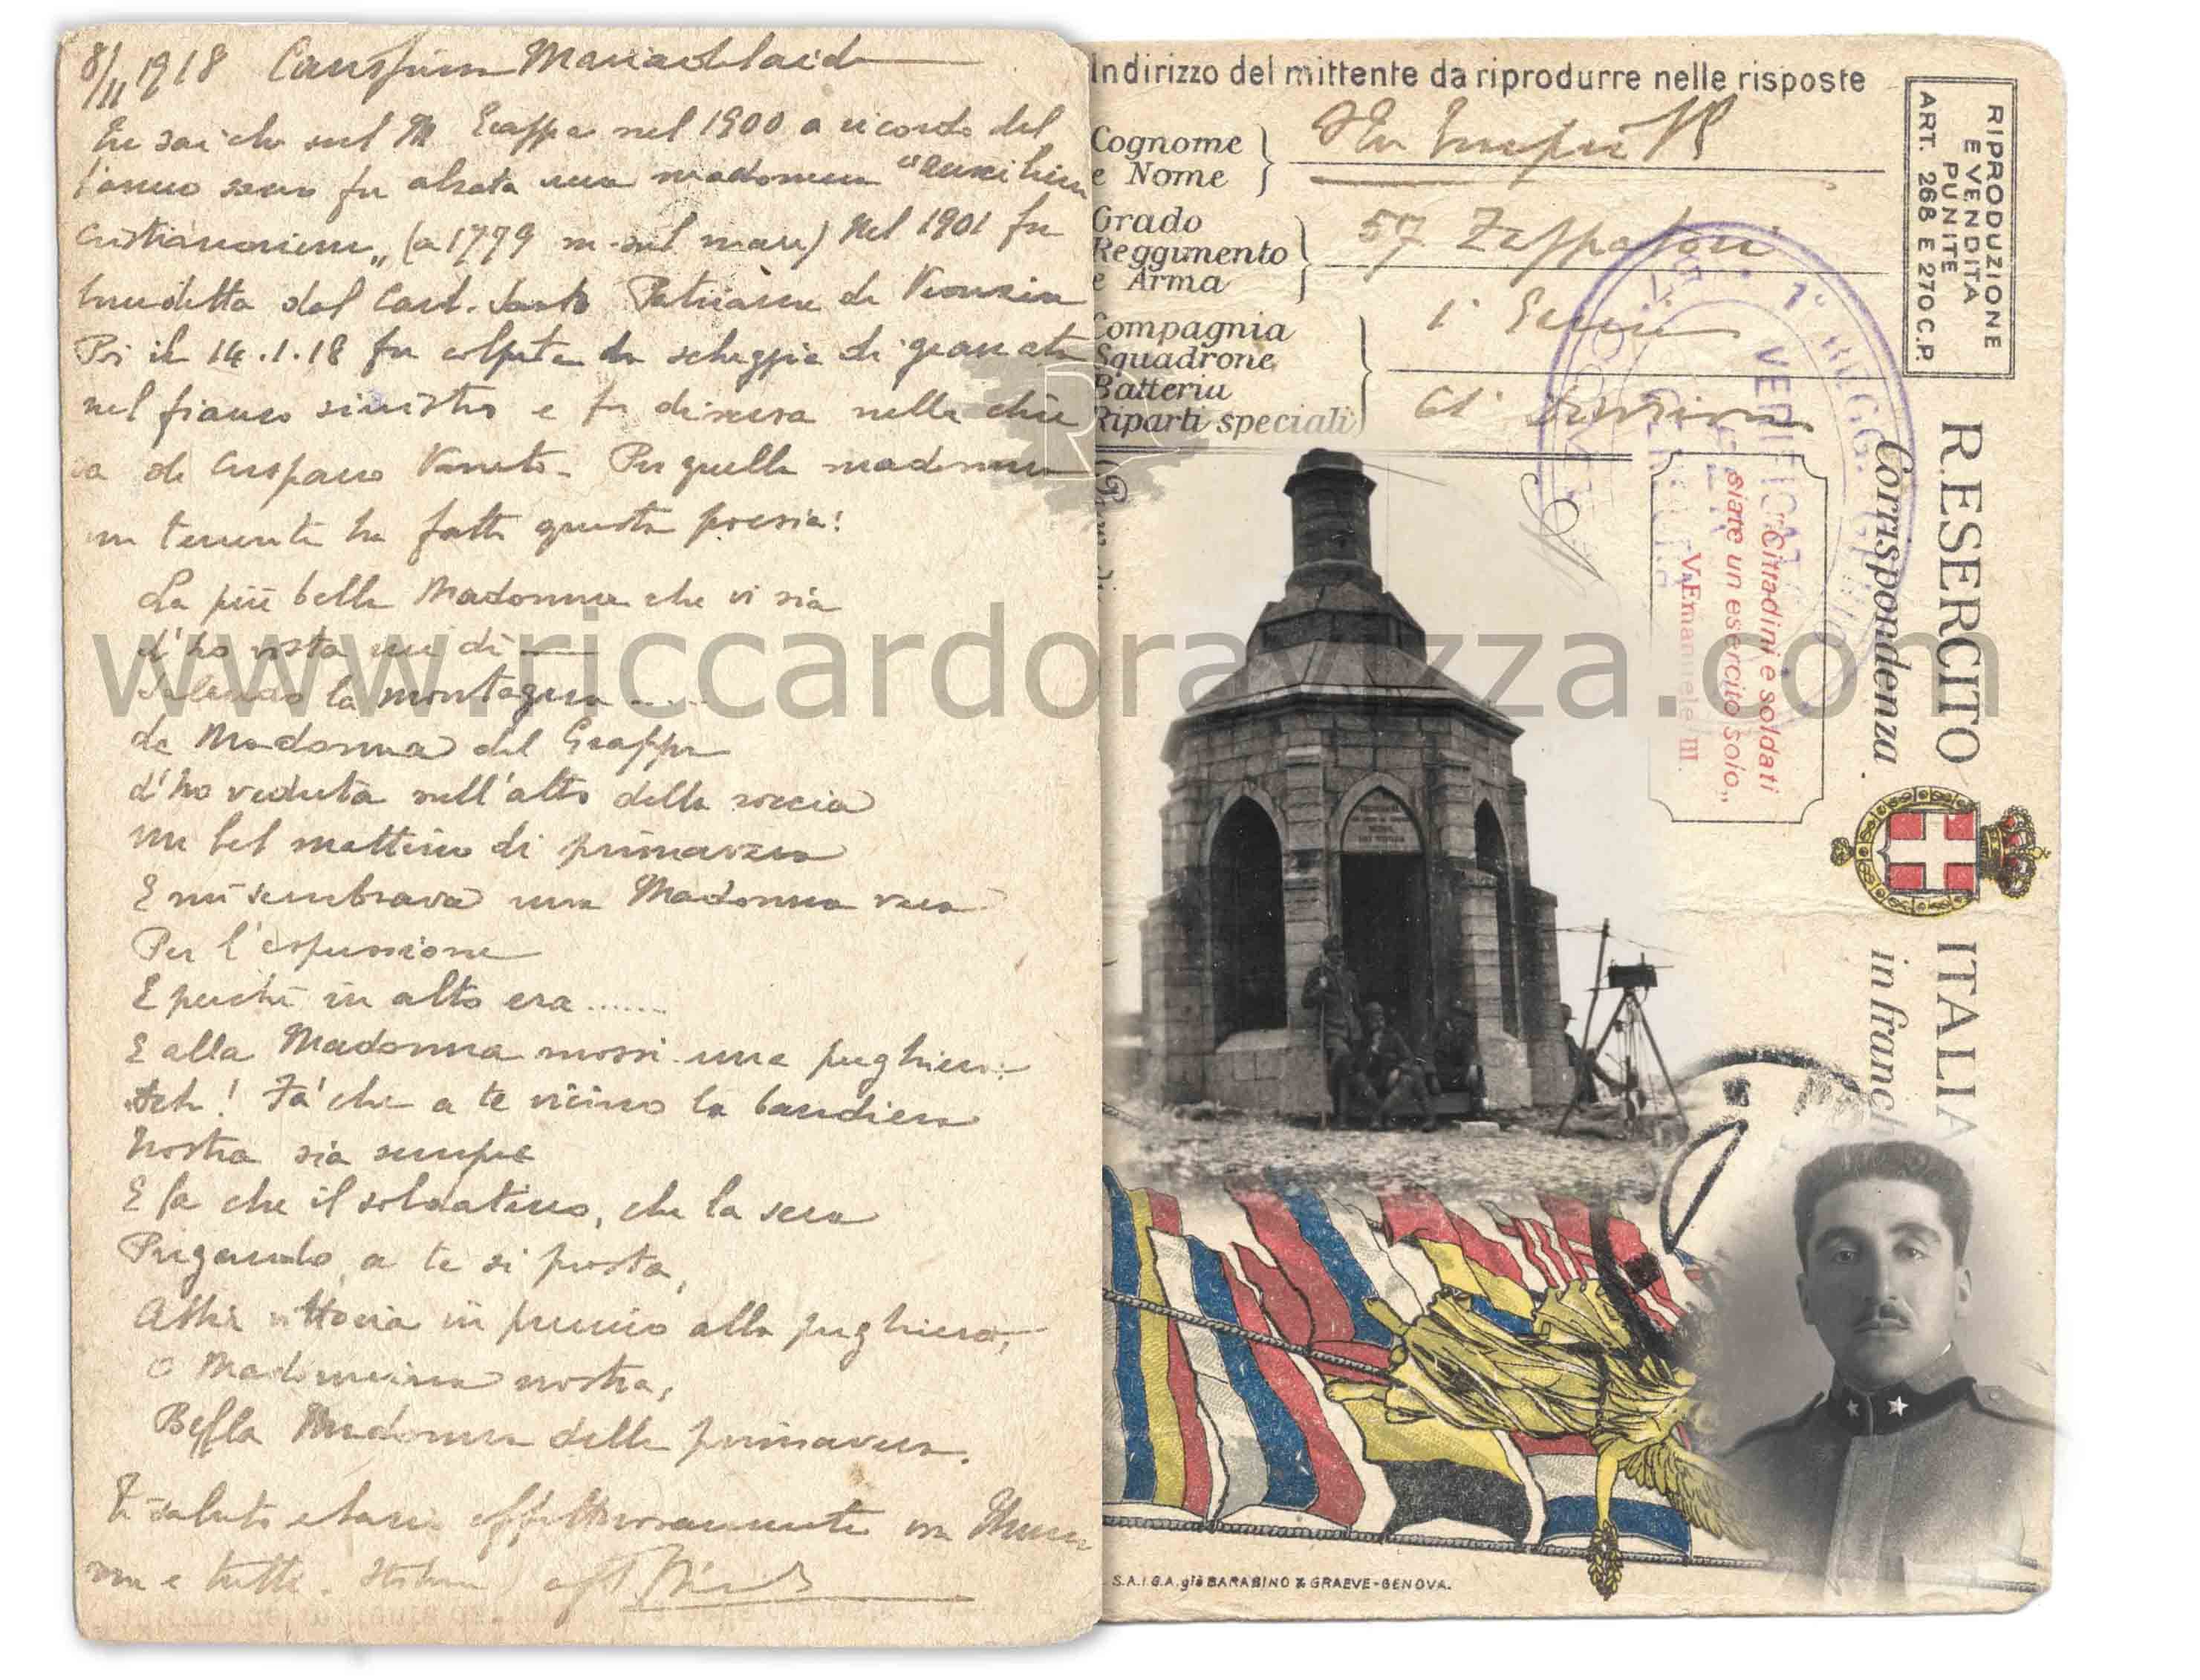 8/11 1918 Mariadelaide
Tu sai che sul M Grappa nel 1900 a ricordo del
l'anno sacro fu alzata una madonna "auxilium
cristianorum„ (a 1779 m. sul mare) Nel 1901 fu
benedetta dal Card. Sarto Patriarca di Venezia
Poi il 14.1.18 fu colpita da scheggia di granata
nel fianco sinistro e fu discesa nella chie
sa di Crespano Veneto. Per quella madonna
un tenente ha fatto questa poesia:
La più bella Madonna che vi sia
L'ho vista un dì
Salendo la montagna .....
La Madonna del Grappa
L'ho veduta sull'alto della roccia
un bel mattino di primavera
E mi sembrava una Madonna vera
Per l'espressione
E perché in alto era ......
E alla Madonna mossi una preghiera:
Deh! Fa' che a te vicino la bandiera
Nostra sia sempre
E fa che il soldatino, che la sera
Pregando, a te si prostra,
Abbia vittoria in premio alla preghiera,
O Madonnina nostra,
Bella Madonna della primavera.
Ti saluto e bacio affettuosamente con Mam
ma e tutti.
Indirizzo del mittente da riprodurre nelle risposte
Cognome
e Nome
Grado
Reggimento
e Arma
57 Zappatori
Compagnia
Squadrone
Batteria
Riparti speciali
1ª Genio
61ª Divisione
RIPRODUZIONE
E VENDITA
PUNITE
ART. 268 E 270 C.P.
R. ESERCITO ITALIA
Corrispondenza in franch
1° REGG.
VERIFICAT
"Cittadini e soldati
siate un esercito solo„
V. Emanuele III.
www.riccardoravizza.com
S.A.I.G.A. già BARABINO & GRAEVE-GENOVA.